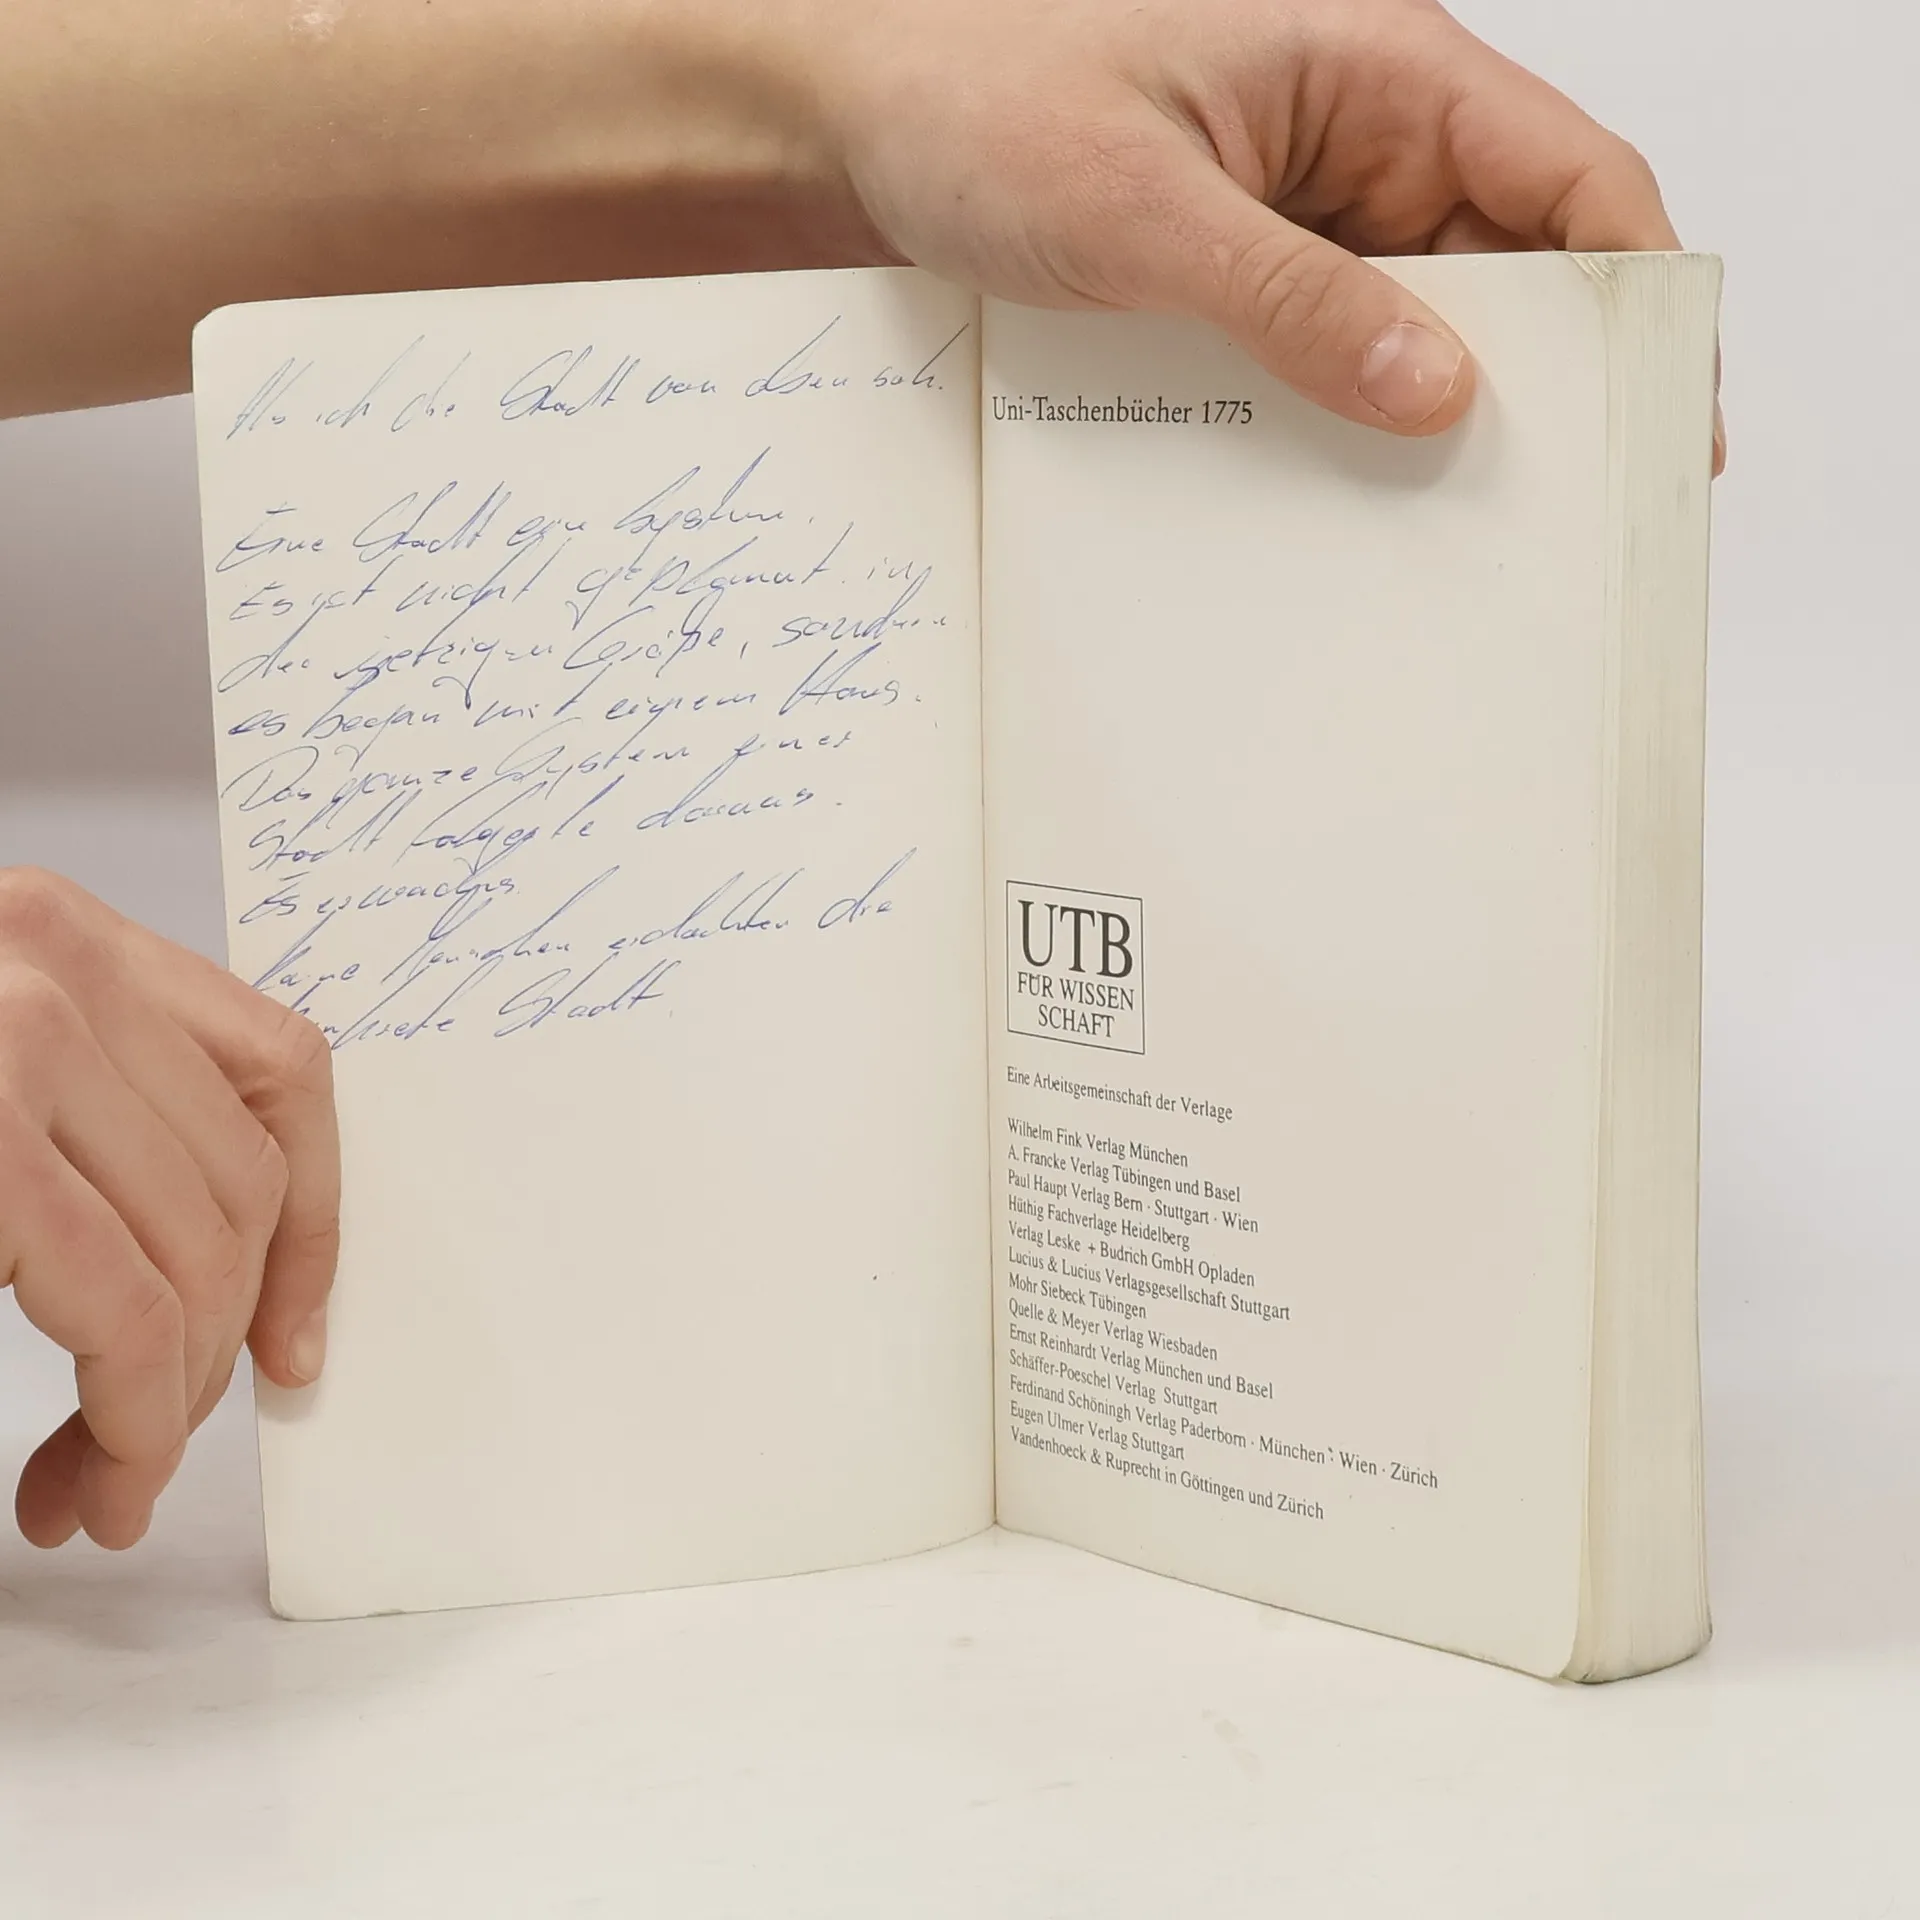 Als ich die Stadt von oben sah.
Eine Stadt ein System.
Es ist nicht geplannt in
der jetzigen Größe, sondern
es began mit einem Haus.
Das ganze System einer
Stadt folgerte daraus.
Es erwachs.
Keine Menschen erdachten die
Stadt.
Uni-Taschenbücher 1775
UTB
FÜR WISSEN
SCHAFT
Eine Arbeitsgemeinschaft der Verlage
Wilhelm Fink Verlag München
A. Francke Verlag Tübingen und Basel
Paul Haupt Verlag Bern · Stuttgart · Wien
Hüthig Fachverlage Heidelberg
Verlag Leske + Budrich GmbH Opladen
Lucius & Lucius Verlagsgesellschaft Stuttgart
Mohr Siebeck Tübingen
Quelle & Meyer Verlag Wiesbaden
Ernst Reinhardt Verlag München und Basel
Schäffer-Poeschel Verlag Stuttgart
Ferdinand Schöningh Verlag Paderborn · München · Wien · Zürich
Eugen Ulmer Verlag Stuttgart
Vandenhoeck & Ruprecht in Göttingen und Zürich